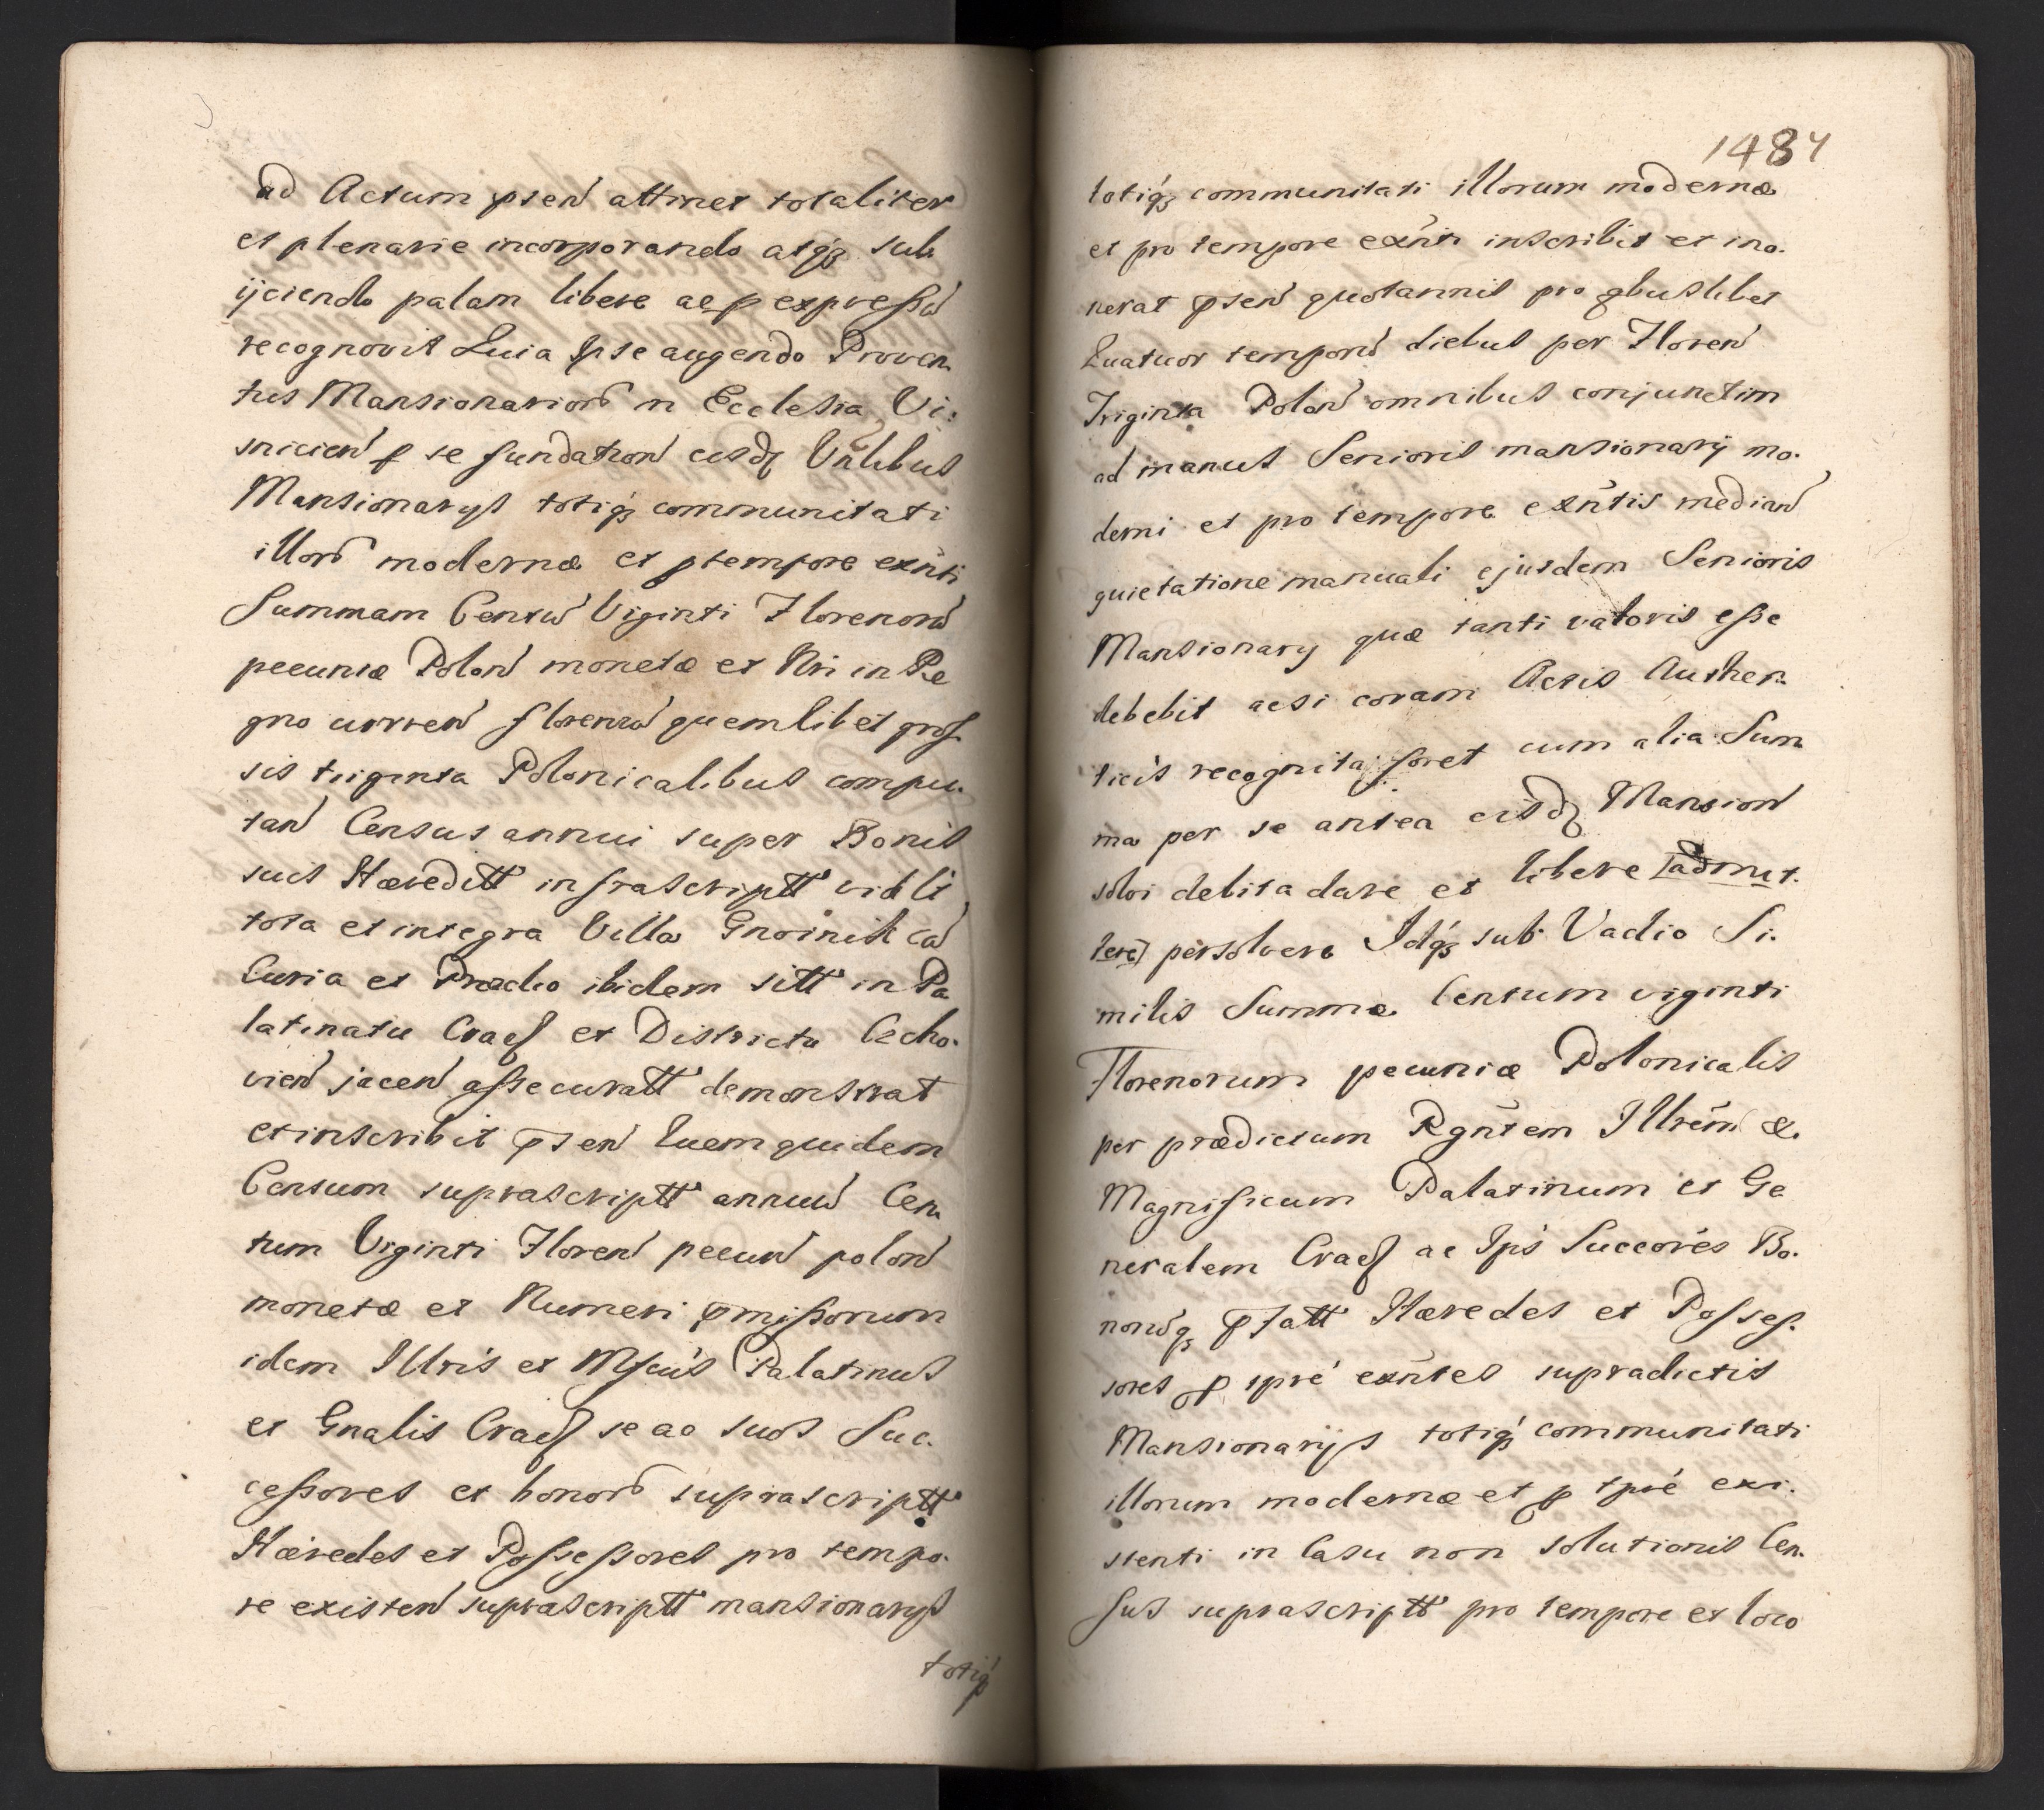 ad Actum pseñ attinet totaliter
et plenarie incorporando atq́ sub
ijciendo palam libere ac p expressũ
recognovit Quia Ipse augendo Proven
tus Mansionariorũ in Ecclesia Vi:
snicień p se fundatioñ eisdȩ Vnlibus
Mansionarys totiq́ communitati
illorũ modernæ et ptempore exñti
Summam Centũ Viginti Florenorũ
pecuniæ Poloñ monetæ et Nri in Re
gno curreñ florenũ quemlibet gros
sis triginta Polonicalibus compu.
tañ Census annui super Bonis
suis Hæreditt infrascriptt videlt
tota et integra Villa Gnoinik cũ
Curia et Prædio ibidem sitt in Pa
latinatu Crac et Districtu Czcho.
vień jaceñ assecuratt demonstrat
et inscribit pseñ Quem quidem
Censum suprascriptt annuũ Cen
tum Viginti Floreñ pecuñ poloñ
monetæ et Numeri pmissorum
idem Illris et Mfcus Palatinus
et Gnalis Crac se ac suos Suc.
cessores et bonorũ suprascriptt
Hæredes et Possessores pro tempo.
re existeñ suprascriptt mansionarys
totiq́
1484
totiq́ communitati illorum modernæ
et pro tempore exñti inscribit et ino.
nerat pseñ quotannis pro qbuslibet
Quatuor temporũ diebus per Floreñ
Triginta Poloñ omnibus conjunctim
ad manus Senioris mansionarij mo.
derni et pro tempore exñtis mediañ
quietatione manuali ejusdem Senioris
Mansionary quæ tanti valoris esse
debebit acsi coram Actis Authen
ticis recognita foret cum alia Sum
ma per se antea eisdȩ Mansioñ
solvi debita dare et libere [admit.
tere] persolvere Idq́ sub Vadio Si.
milis Summæ Centum viginti
Florenorum pecuniæ Polonicalis
per prædictum Rgñtem Illrem &
Magnificum Palatinum et Ge
neralem Crac ac Ips Succores Bo.
norũq́ pfatt Hæredes et Posses.
sores p tpre exñtes supradictis
Mansionarijs totiq́ communitati
illorum modernæ et p tpre exi.
stenti in Casu non solutionis Cen.
sus suprascriptt pro tempore et loco